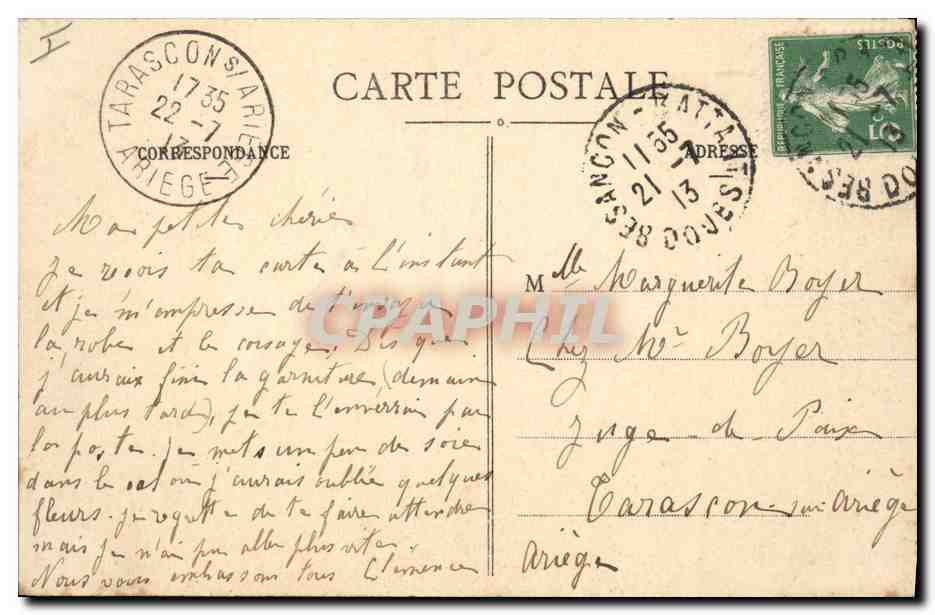 I
CARTE POSTALE
CORRESPONDANCE
ADRESSE
TARASCON S/ ARIEGE
17 35
22 - 7
13
ARIEGE
BESANCON - BATTANT
11 55
21 - 7
13
DOUBS
POSTES
REPUBLIQUE FRANÇAISE
5
Ma petite chérie
Je reçois ta carte à l'instant
et je m'empresse de t'envoyer
la robe et le corsage. Dès que
j'aurais fini la garniture (demain
au plus tard), je te l'enverrai par
la poste. Je mets un peu de soie
dans le col où j'aurais oublié quelques
fleurs. Je regrette de te faire attendre
mais je n'ai pu aller plus vite.
Nous vous embrassons tous Clémence
Mlle Marguerite Boyer
Chez Mr Boyer
Juge-de-Paix
Tarascon sur Ariège
Ariège
CPAPHIL